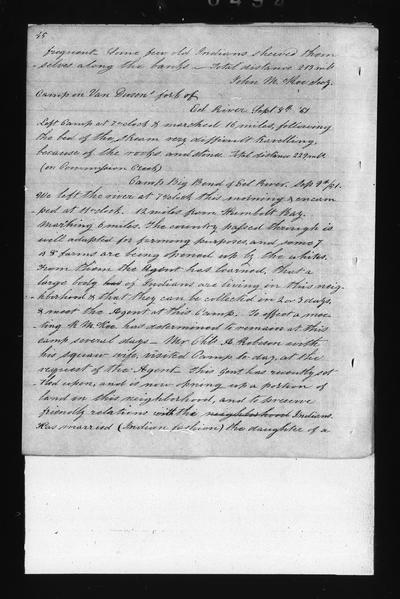 45
frequent. Some few old Indians shewed them
selves along the banks — Total distance 213 mls
John McKee Secy.
Camp on Van Dusen's fork of
Eel River Sept 8th '51
Left Camp at 7 o'clock & marched 16 miles, following
the bed of the stream very difficult travelling,
because of the rocks and stones. Total distance 229 mls
(on Commission Creek)
Camp Big Bend of Eel River. Sept 9th /51.
We left the river at 7 o'clock this morning & encam
ped at 11 o'clock. 12 miles from Humbolt Bay.
Marching 6 miles. The country passed through is
well adapted for farming purposes, and some 7
or 8 farms are being opened up by the whites.
From them the Agent has learned, that a
large body of Indians are living in this neig-
hborhood & that they can be collected in 2 or 3 days,
& meet the Agent at this Camp. To effect a mee
ting R. McKee has determined to remain at this
camp several days — Mr Chs A. Robson with
his squaw wife, visited Camp to day, at the
request of the Agent. This Gent has recently set
tled upon, and is now opning up a portion of
land in this neighborhood, and to preserve
friendly relations with the neighborhood Indians.
Has married (Indian fashion) the daughter of a